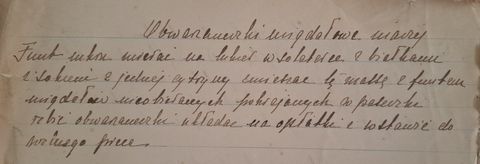 Obwarzaneczki migdałowe inaczej
Funt cukru miesiać na lukier w salaterce z białkami
i sokiem z jednej cytryny mieszać tę massę z funtem
migdałów nieobieranych pokrajanych w paseczki
robić obwarzaneczki układać na opłatki i wstawić do
wolnego pieca